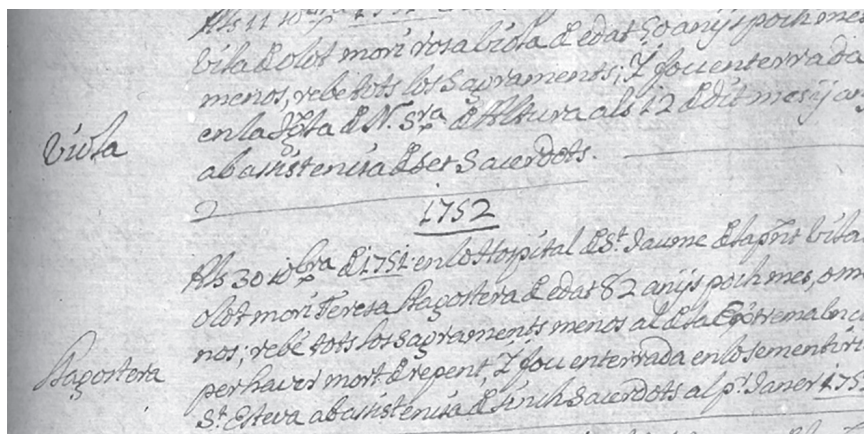 Als 11 10bra 1751
Vila d olot morí rosa viola d edat 50 anys poch mes
menos, rebé tots los Sagraments; Y fou enterrada
en la Igla d N. Sra d l Tura als 12 d dit mes y an
Viola
ab asistencia d set Sacerdots.
1752
Als 30 10bra d 1751 en lo Hospital d St. Jaume d la pnt Vila
olot morí Teresa Llagostera d edat 82 anys poch mes, o me
nos; rebé tots los Sagraments menos al d la Extremaunció
Llagostera
per haver mort d repent, Y fou enterrada en lo sementiri
St. Esteva ab asistencia d sinch Sacerdots al pr. Janer 175